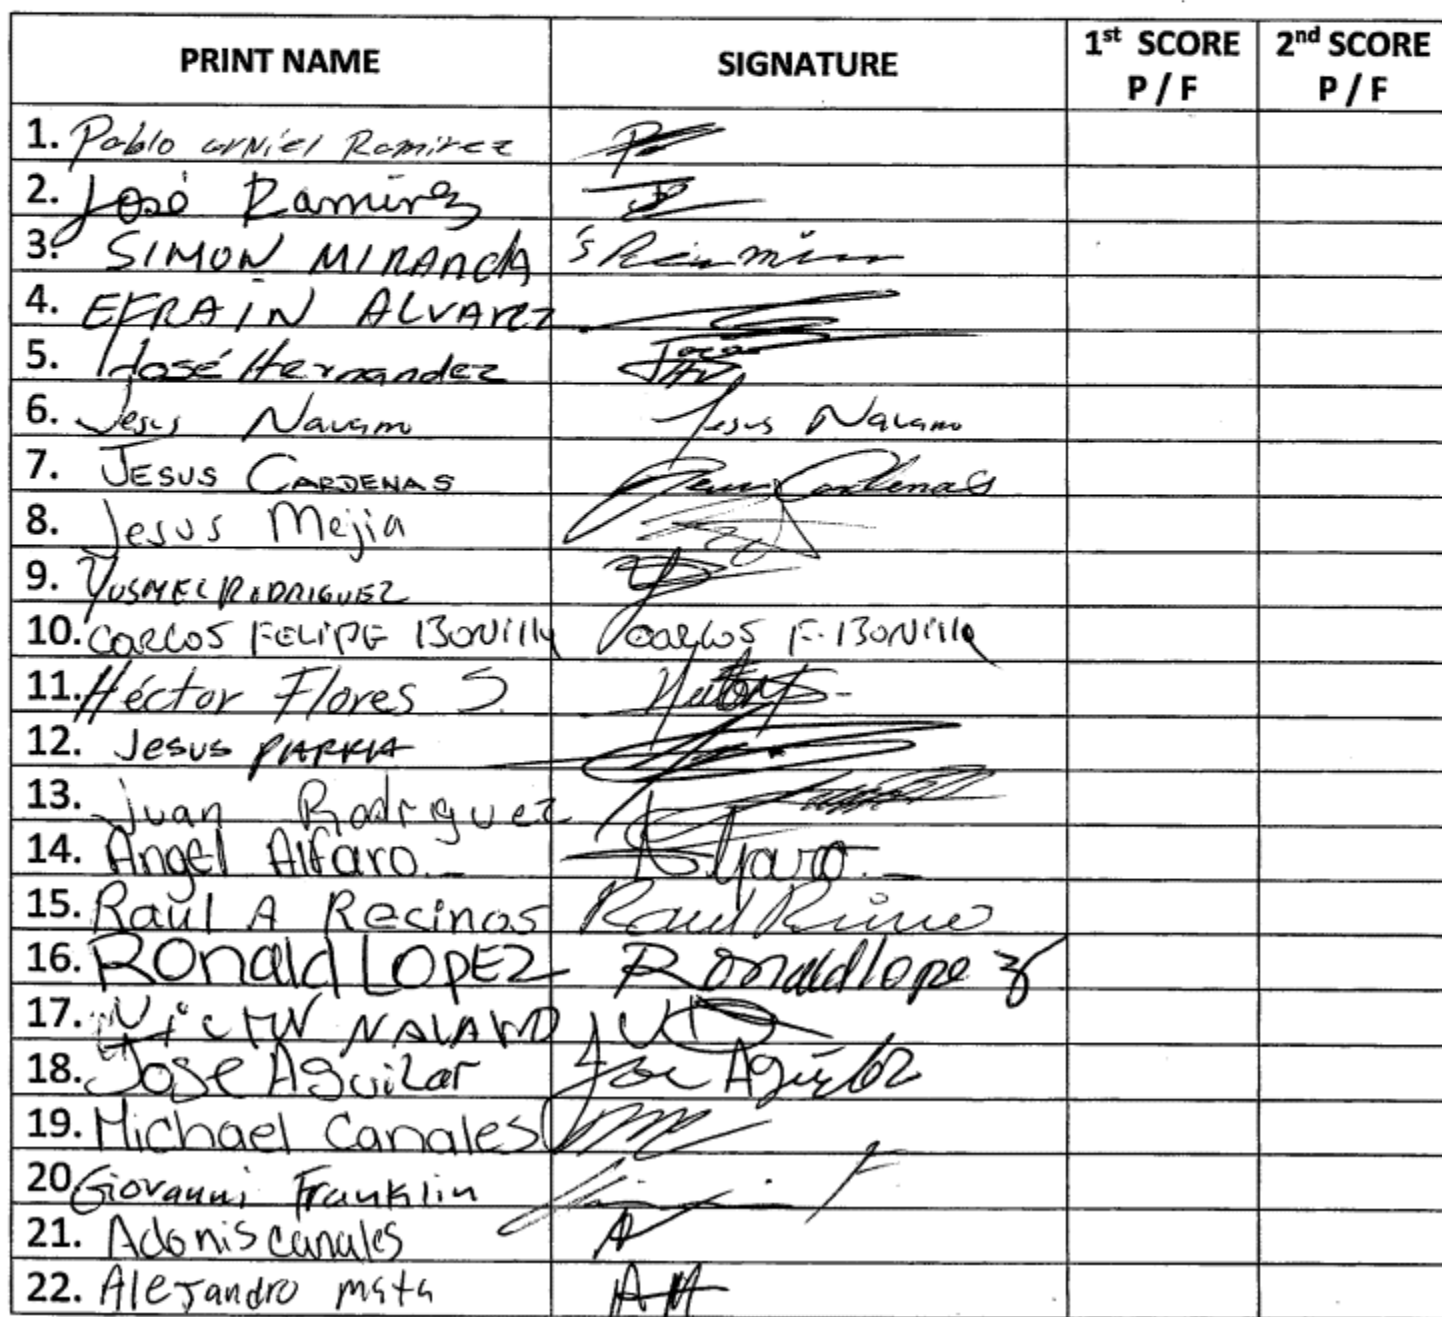 PRINT NAME SIGNATURE 1st SCORE P / F 2nd SCORE P / F
1. Pablo Ramirez
2. José Ramirez
3. SIMON MIRANDA
4. EFRAIN ALVAREZ
5. José Hernandez
6. Jesus Navarro Jesus Navarro
7. JESUS CARDENAS Jesus Cardenas
8. Jesus Mejia
9. YUSMEL RODRIGUEZ
10. CARLOS FELIPE BONILLA CARLOS F. BONILLA
11. Héctor Flores S.
12. Jesus
13. Juan Rodriguez
14. Angel Alfaro Alfaro
15. Raúl A Recinos Raul
16. RONald LOPEZ Ronald lopez
17. NAVARRO
18. Jose Aguilar Jose Aguilar
19. Michael Canales
20. Giovanni Franklin
21. Adonis canales
22. Alejandro mata AM